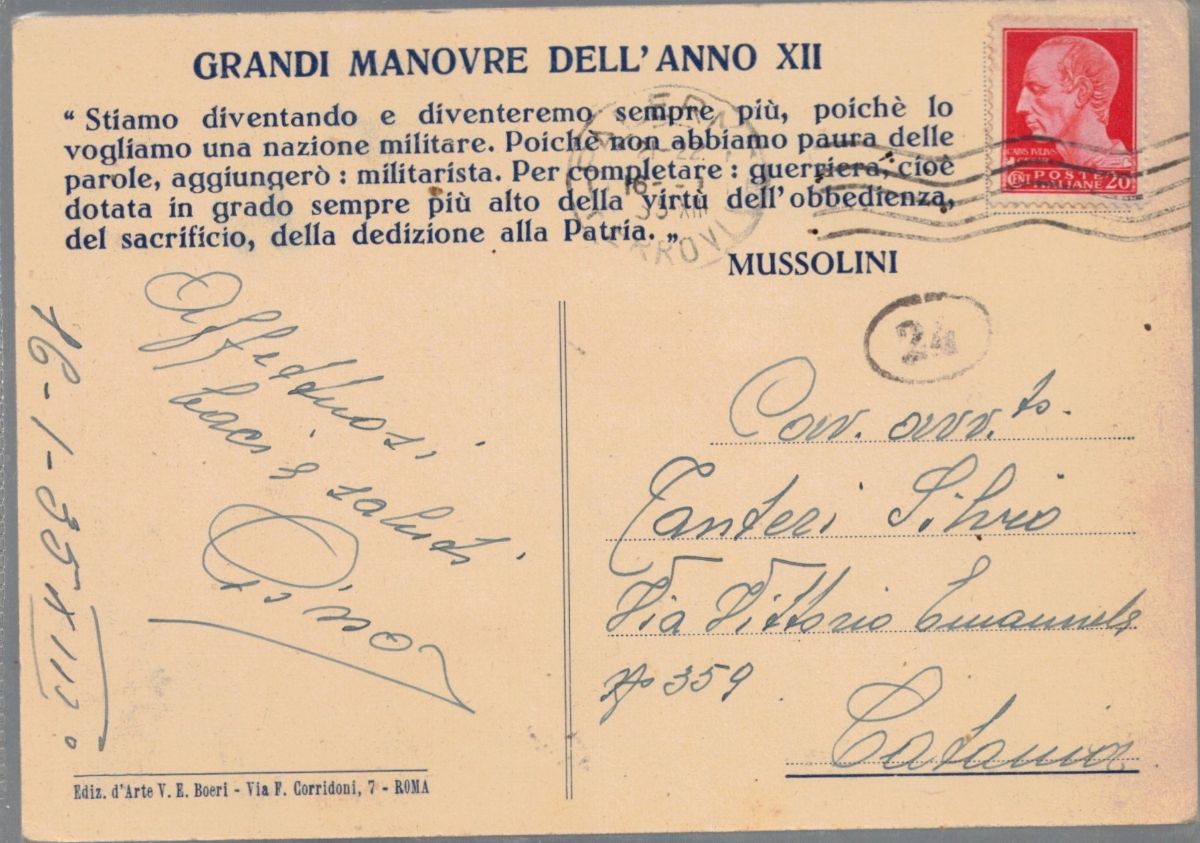 GRANDI MANOVRE DELL'ANNO XII
“ Stiamo diventando e diventeremo sempre più, poichè lo
vogliamo una nazione militare. Poichè non abbiamo paura delle
parole, aggiungerò : militarista. Per completare : guerriera, cioè
dotata in grado sempre più alto della virtù dell'obbedienza,
del sacrificio, della dedizione alla Patria. „
MUSSOLINI
CENT POSTE
ITALIANE 20
24
16-1-35 XIII°
Affettuosi
baci e saluti
Cav. avv.to
Tanteri Silvio
Via Vittorio Emanuele
N° 359
Catania
Ediz. d'Arte V. E. Boeri - Via F. Corridoni, 7 - ROMA